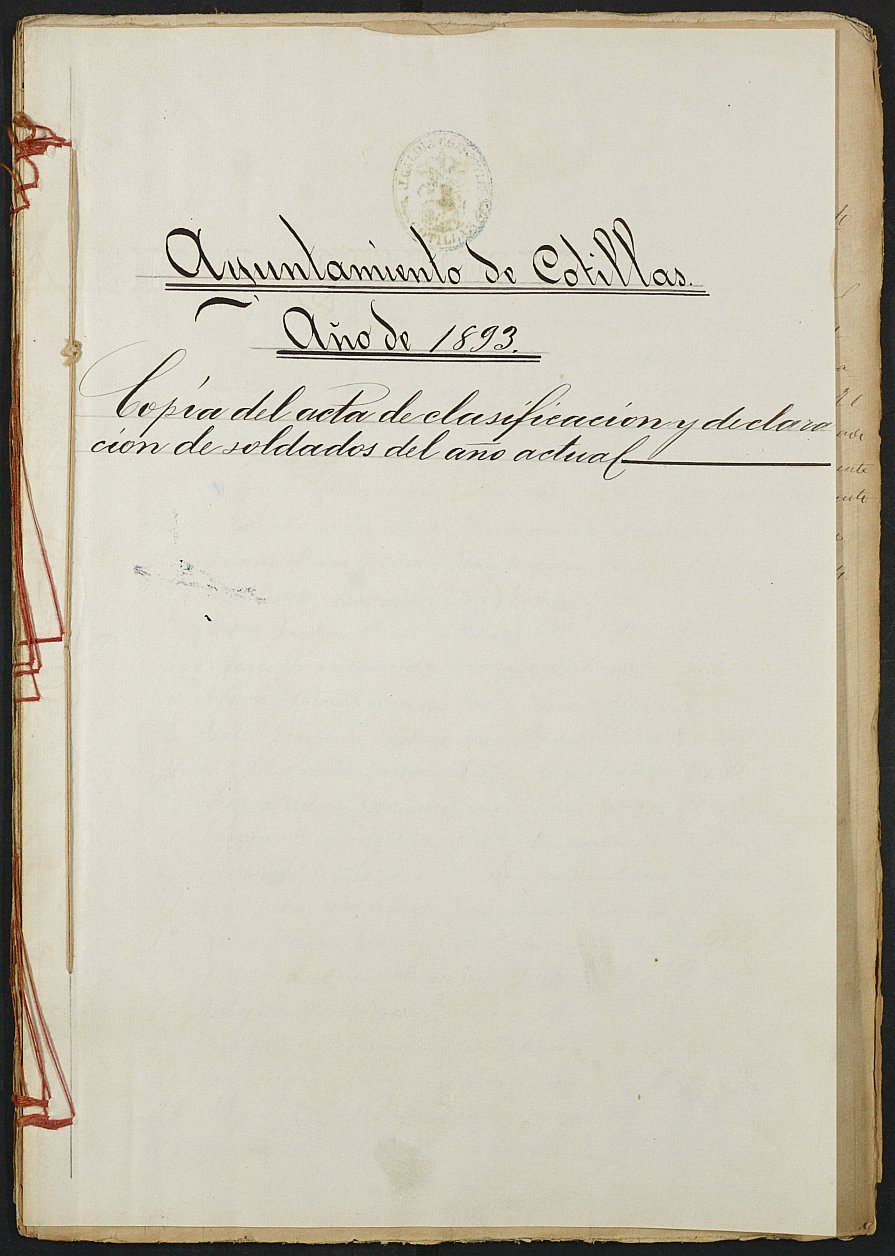 Ayuntamiento de Cotillas.
Año de 1893.
Copia del acta de clasificacion y declara
cion de soldados del año actual